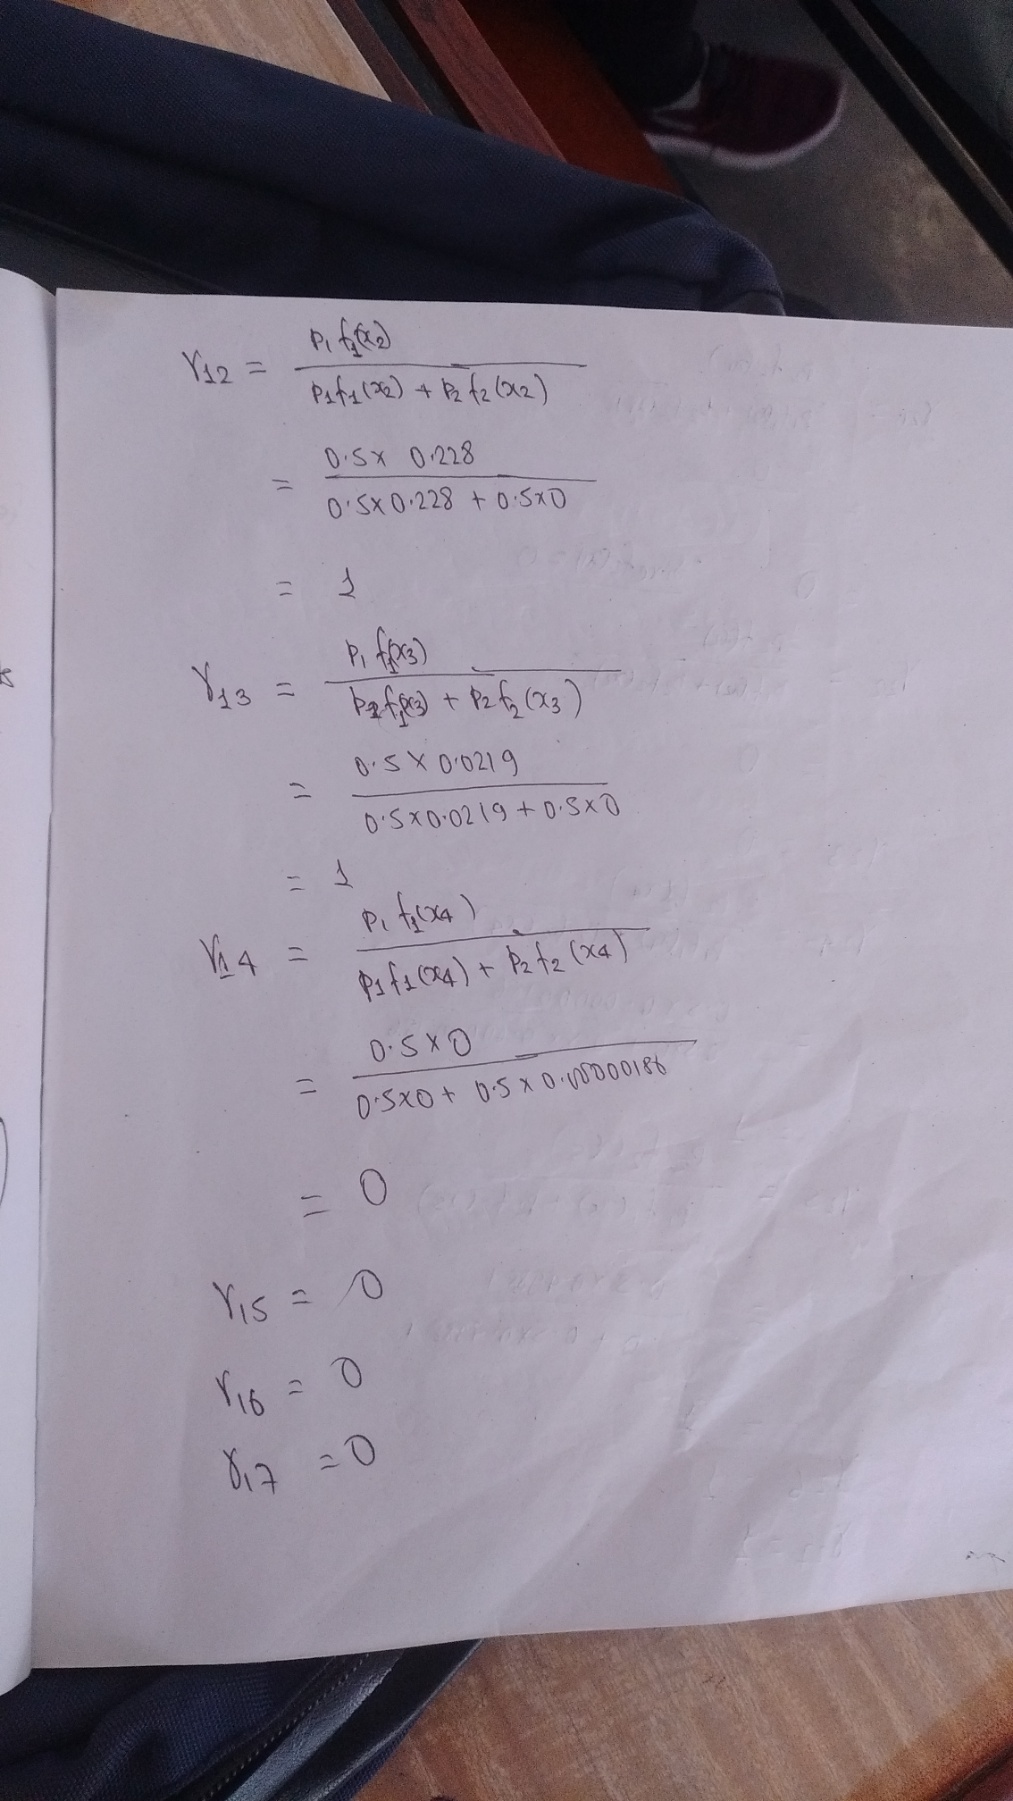 γ12 = p1 f1(x2) / p1f1(x2) + p2 f2(x2)
= 0.5 x 0.228 / 0.5x0.228 + 0.5x0
= 1
γ13 = p1 f1(x3) / p1f1(x3) + p2 f2(x3)
= 0.5 x 0.0219 / 0.5x0.0219 + 0.5x0
= 1
γ14 = p1 f1(x4) / p1f1(x4) + p2 f2(x4)
= 0.5x0 / 0.5x0 + 0.5 x 0.00000186
= 0
γ15 = 0
γ16 = 0
γ17 = 0